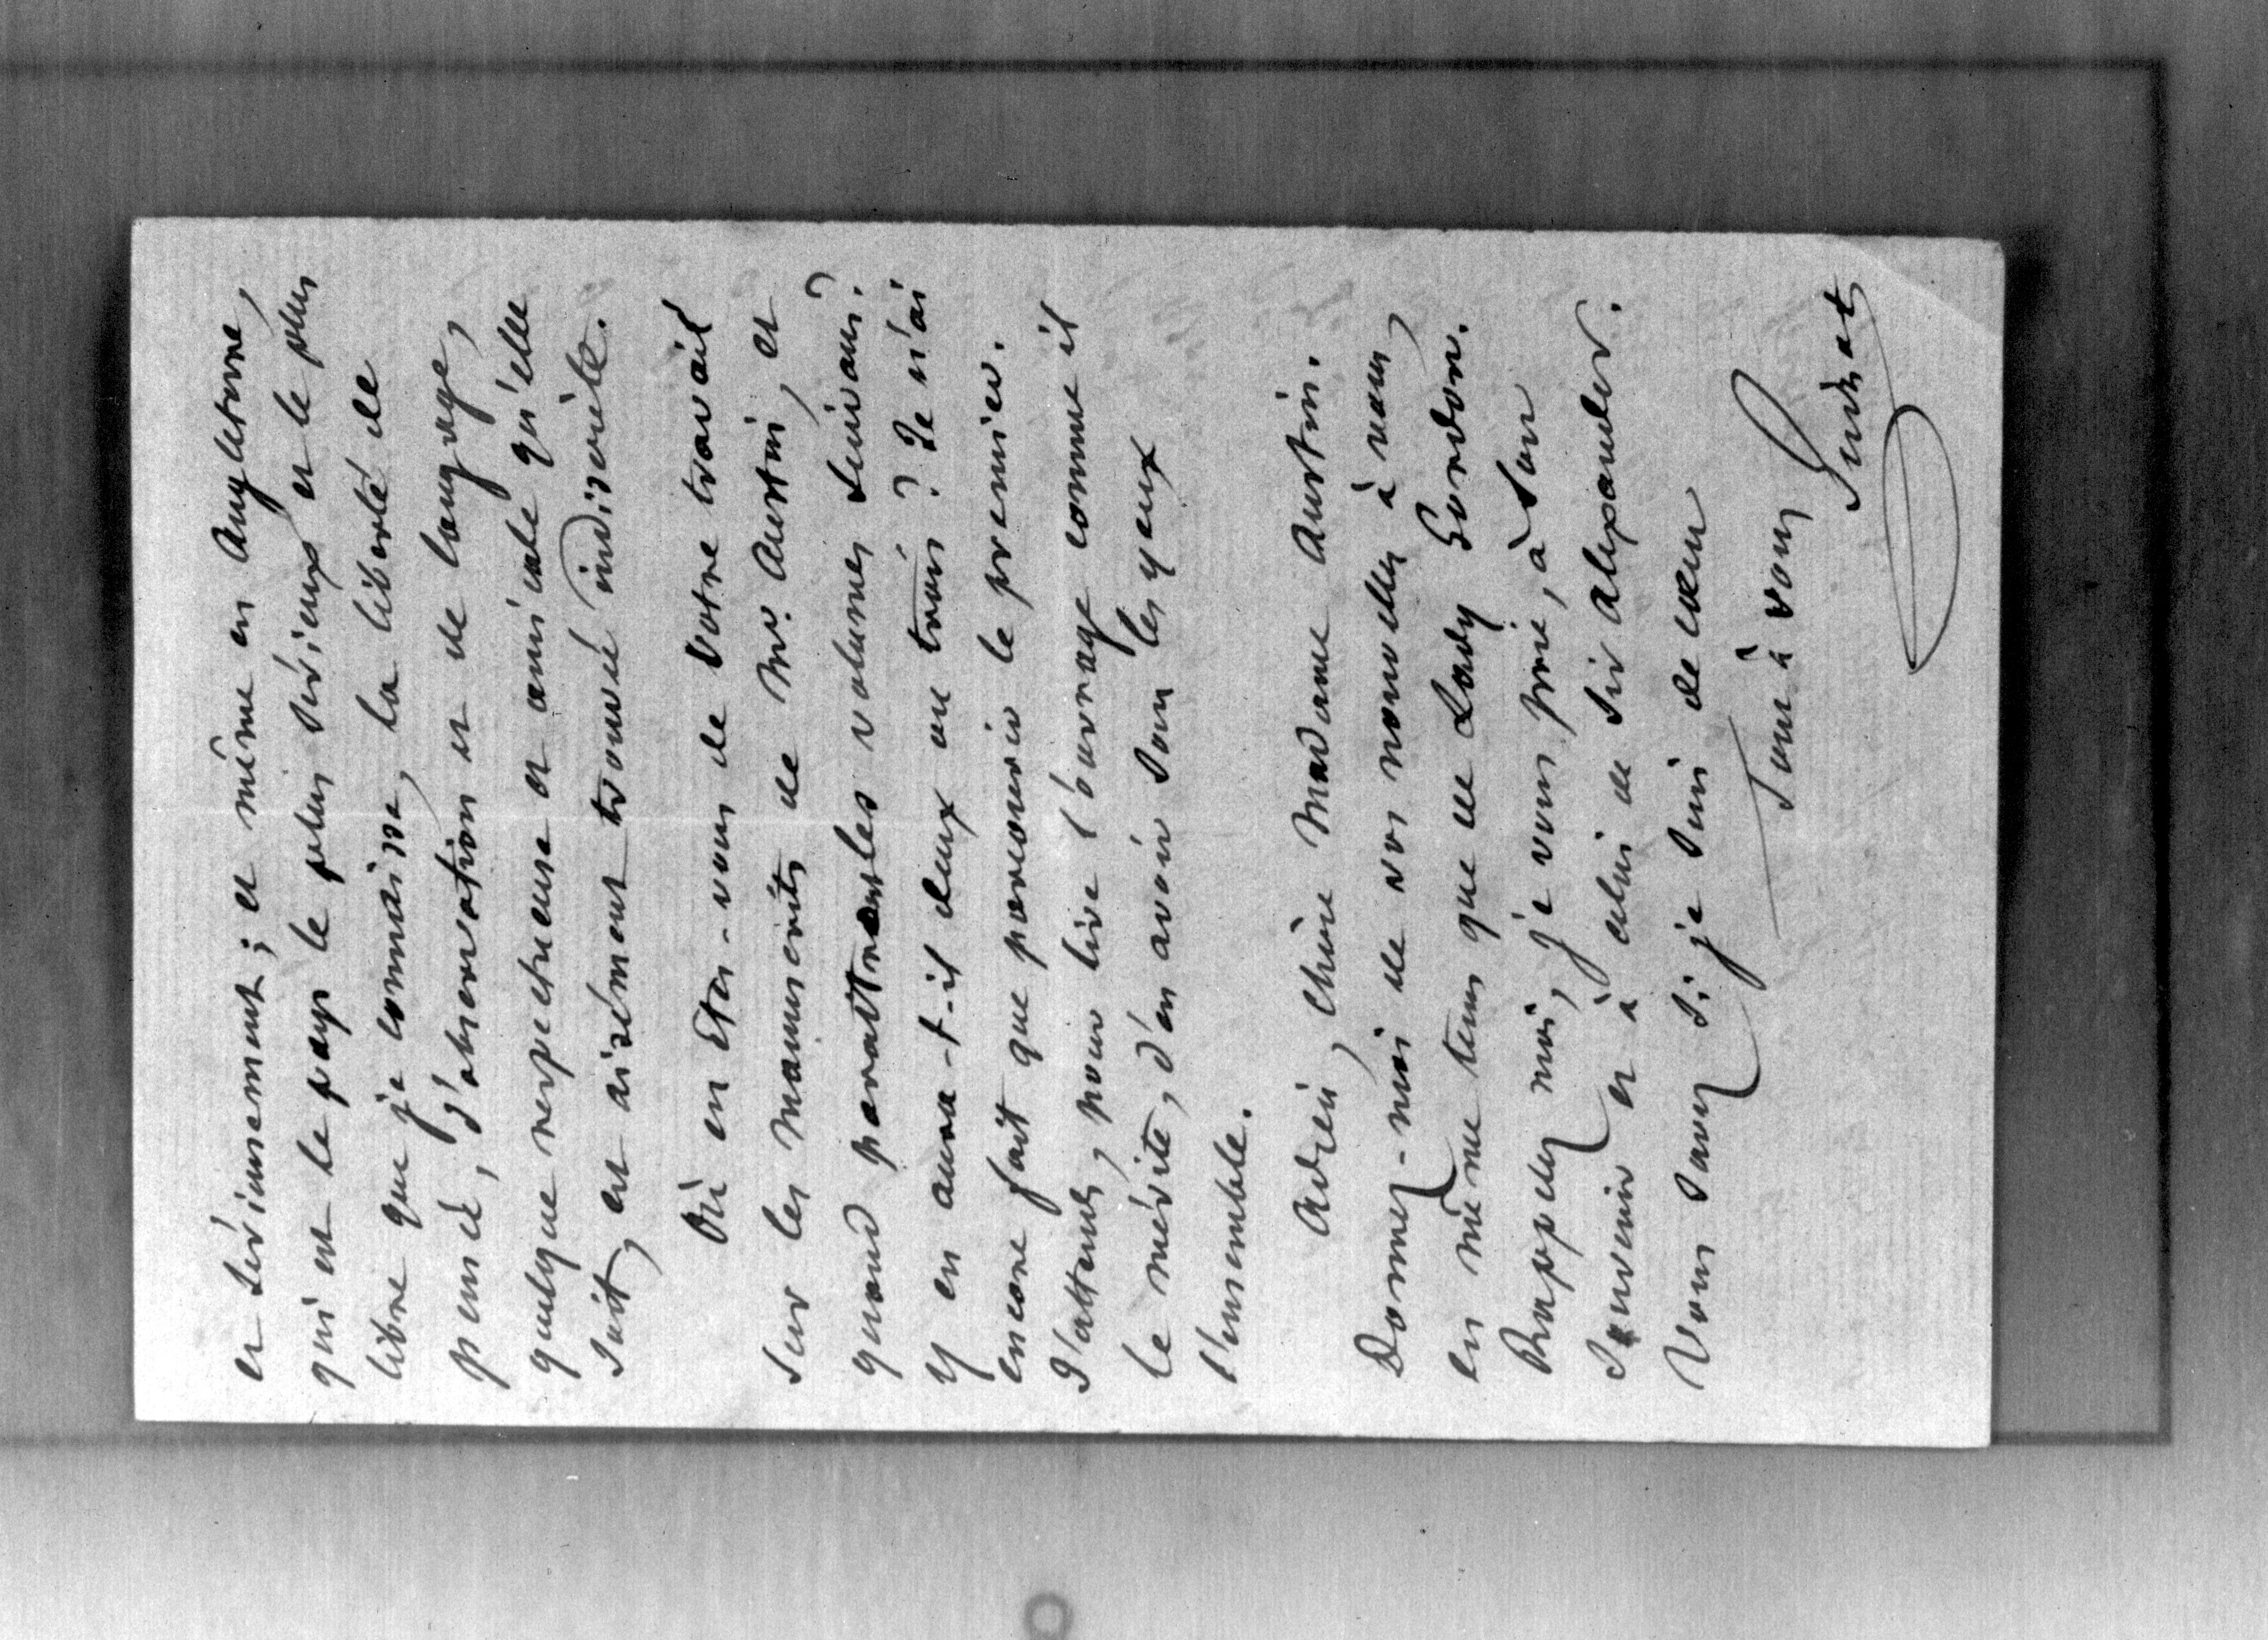 et sérieusement ; et même en Angleterre,
qui est le pays le plus sérieux et le plus
libre que je connaisse, la liberté de
pensée, d'observation et de langage,
quelque respectueuse et amicale qu'elle
soit, est aisément trouvée indiscrète.
Où en êtes-vous de votre travail
sur les manuscrits de Mr. Austin, et
quand paraîtront les volumes suivans ?
Y en aura-t-il deux ou trois ? Je n'ai
encore fait que parcourir le premier.
J'attends, pour lire l'ouvrage comme il
le mérite, d'en avoir sous les yeux
l'ensemble.
Adieu, chère Madame Austin.
Donnez-moi de vos nouvelles à vous,
en même tems que de Lady Gordon.
Rappelez moi, je vous prie, à son
souvenir et à celui de Sir Alexander.
Vous savez si je suis de cœur
Tout à vous
Guizot